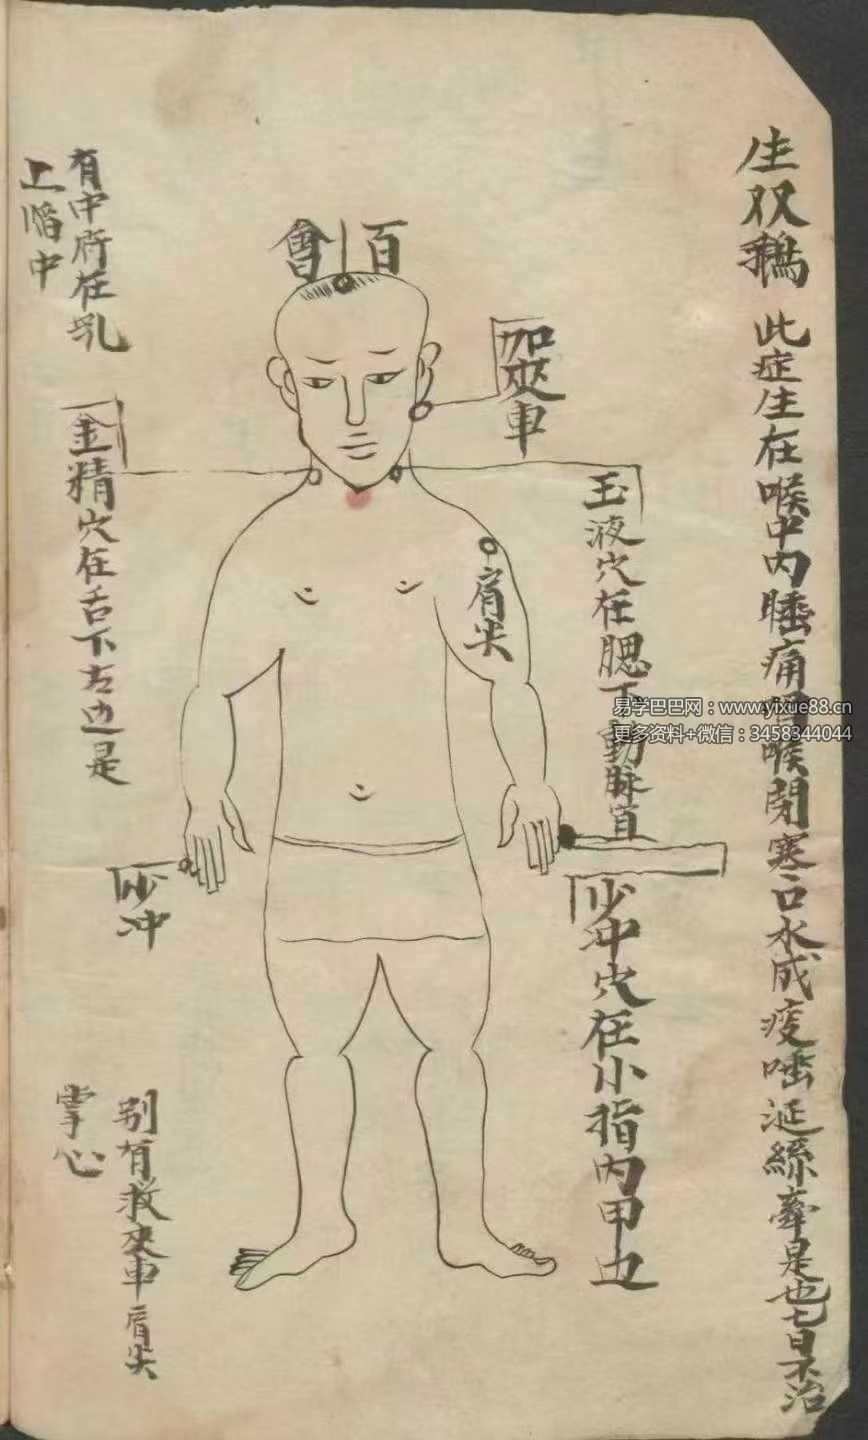 生双鹅
此症生在喉中内腄痛咽喉閉塞口水成痰唾涎絲牽是也七日不治
百會
加夾車
玉液穴在腮下動脉宜
肩尖
少冲穴在小指内甲边
少冲
金精穴在舌下左边是
有中府在乳
上陷中
别有救夾車肩尖
掌心
易学巴巴网：www.yixue88.cn
更多资料+微信：3458344044